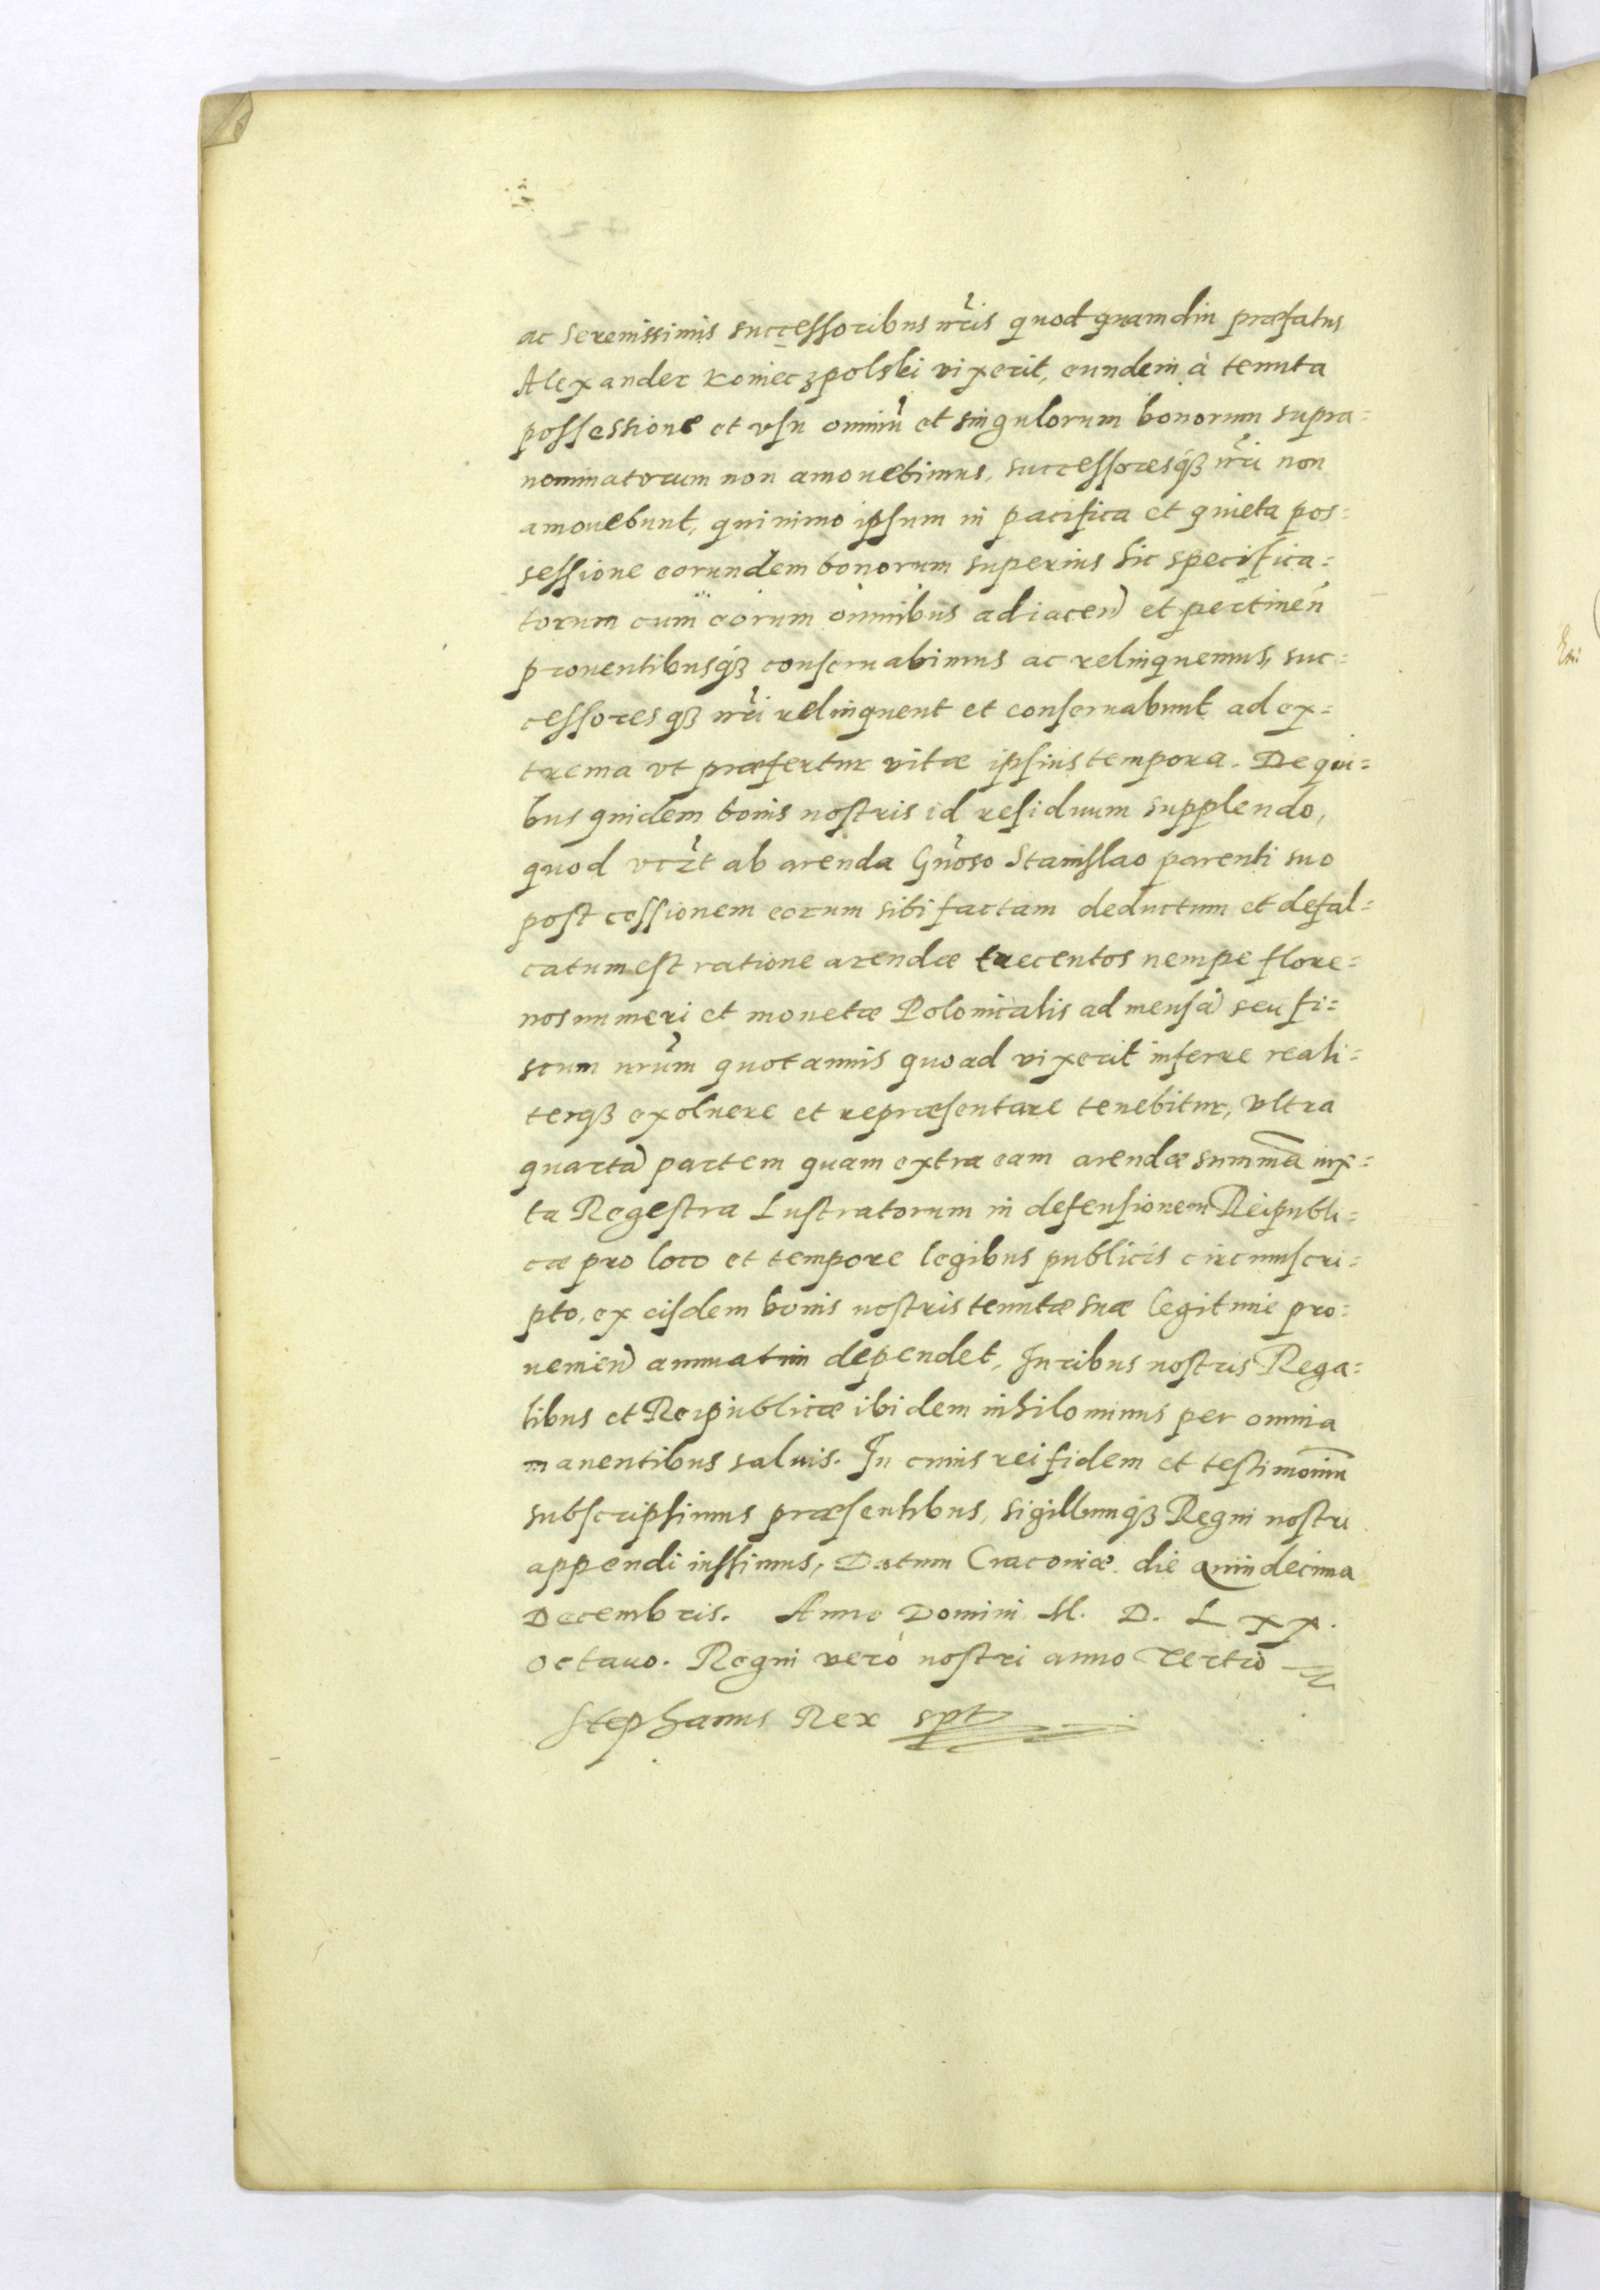 ac Serenissimis successoribus nr̃is quod quamdiu præfatus
Alexander Konieczpolski vixerit, eundem à tenuta
possessione et vsu omniũ et singulorum bonorum supra=
nominatorum non amouebimus, successoresq́ꝫ nr̃i non
amouebunt, quinimo ipsum in pacifica et quieta pos=
sessione eorundem bonorum superius sic specifica=
torum cum eorum omnibus adiaceñ et pertineñ
prouentibusq́ꝫ conseruabimus ac relinquemus, suc=
cessoresqꝫ nr̃i relinquent et conseruabunt ad ex=
trema vt præfertur vitæ ipsius tempora. De qui=
bus quidem bonis nostris id residuum supplendo,
quod vczt ab arenda Gñoso Stanislao parenti suo
post cessionem eorum sibi factam deductum et defal=
catum est ratione arendæ trecentos nempe flore=
nos numeri et monetæ Polonicalis ad mensã seu fi=
scum nr̃um quotannis quoad vixerit inferre reali=
terqꝫ exoluere et repræsentare tenebitur, vltra
quartã partem quam extra eam arendæ summã iux=
ta Regestra Lustratorum in defensionem Reipubli=
cæ pro loco et tempore legibus publicis circumscri=
pto, ex eisdem bonis nostris tenutæ suæ legitime pro=
uenieñ annuatim dependet, Iuribus nostris Rega=
libus et Reipublicæ ibidem nihilominus per omnia
manentibus saluis. In cuius rei fidem et testimoniũ
subscripsimus præsentibus, sigillumq́ꝫ Regni nostri
appendi iussimus, Datum Cracouiæ die Quindecima
Decembris. Anno Domini M. D. L x x.
octauo. Regni verò nostri anno Tertio
Stephanus Rex spt